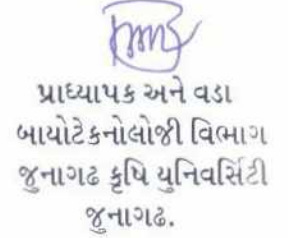 પ્રાધ્યાપક અને વડા
બાયોટેકનોલોજી વિભાગ
જુનાગઢ કૃષિ યુનિવર્સિટી
જુનાગઢ.